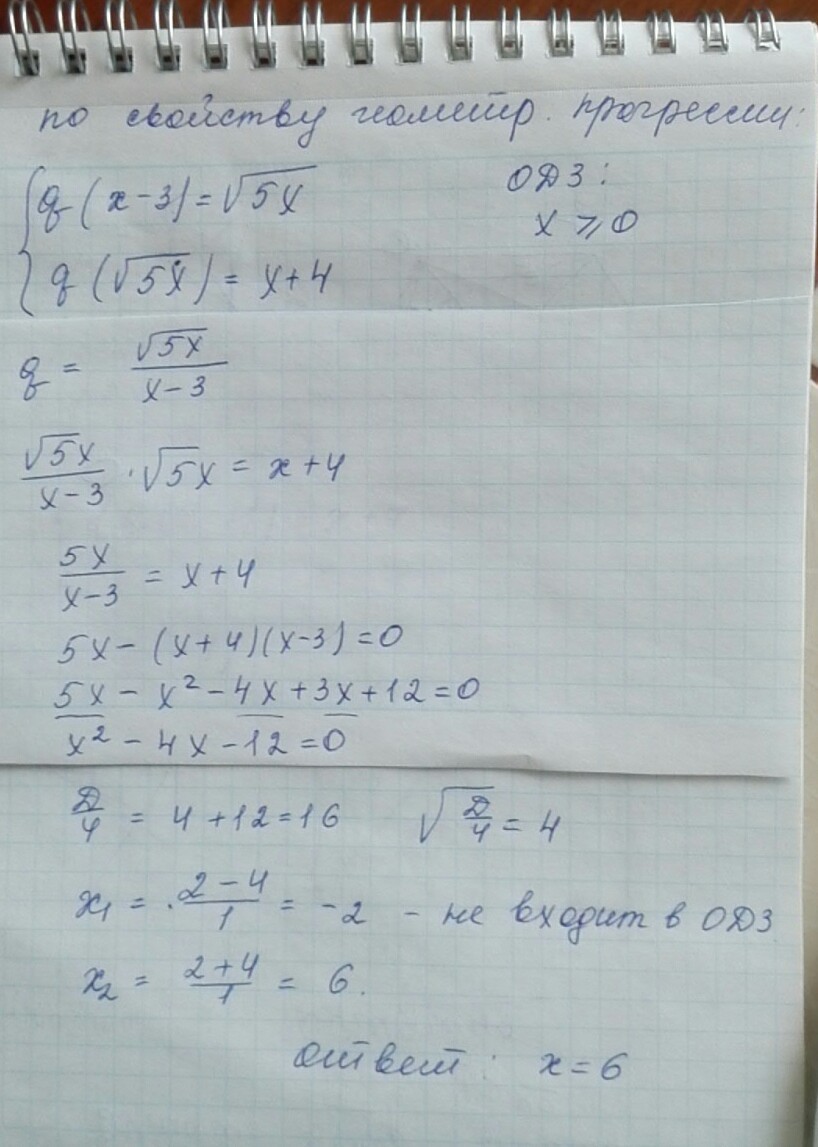 по свойству геометр. прогрессии:
q(x-3)=√5x ОДЗ:
x ⩾ 0
q(√5x) = x+4
q = √5x / x-3
√5x / x-3 · √5x = x+4
5x / x-3 = x+4
5x - (x+4)(x-3)=0
5x - x² - 4x + 3x + 12 = 0
x² - 4x - 12 = 0
Д/4 = 4+12=16 √Д/4 = 4
x₁ = 2-4 / 1 = -2 - не входит в ОДЗ
x₂ = 2+4 / 1 = 6.
ответ: x=6